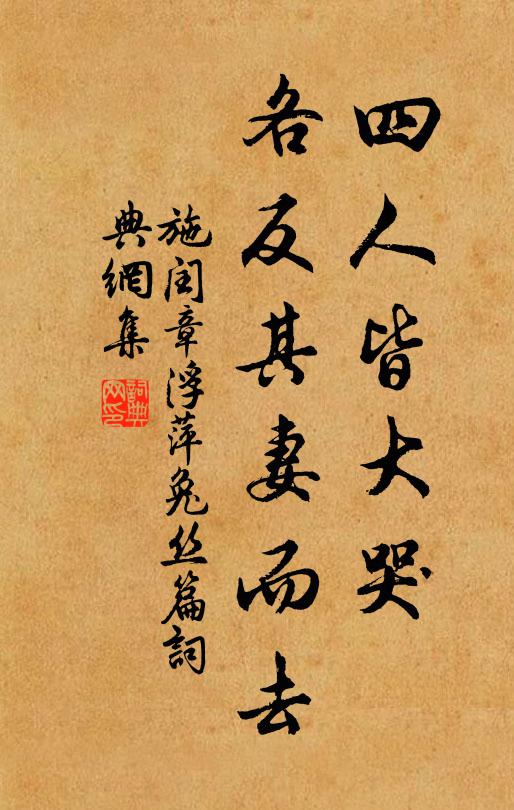 四人皆大哭
各反其妻而去
施閏章浮萍兔丝篇詞
典網集
詞典网印